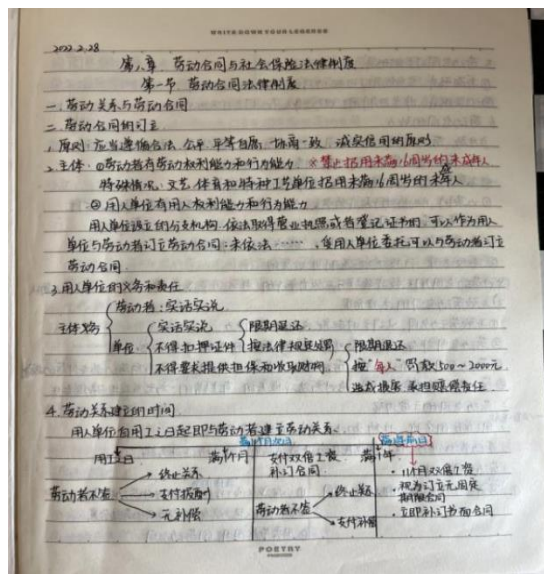 WRITE DOWN YOUR LEGENDS
2022.2.28
第八章 劳动合同与社会保险法律制度
第一节 劳动合同法律制度
一.劳动关系与劳动合同
二.劳动合同的订立
1.原则:应当遵循合法、公平、平等自愿、协商一致、诚实信用的原则
2.主体:①劳动者有劳动权利能力和行为能力 ※禁止招用未满16周岁的未成年人
特殊情况:文艺、体育和特种工艺单位招用未满16周岁的未成年人
②用人单位有用人权利能力和行为能力
用人单位设立的分支机构,依法取得营业执照或者登记证书的,可以作为用人
单位与劳动者订立劳动合同;未依法……,受用人单位委托可以与劳动者订立
劳动合同.
3.用人单位的义务和责任
劳动者:实话实说
主体义务
单位:
实话实说
不得扣押证件
不得要求提供担保而收取财物
限期退还
按法律规定处罚
限期退还
按"每人"罚款500~2000元
造成损害,承担赔偿责任
4.劳动关系建立的时间
用人单位自用工之日起即与劳动者建立劳动关系.
满1个月次日
满1年前1日
用工之日
满1个月
支付双倍工资
补订合同
满1年
劳动者不签
终止关系
支付报酬
无补偿
劳动者不签
终止关系
支付补偿
·11个月双倍工资
·视为订立无固定
期限合同
·立即补订书面合同
POETRY